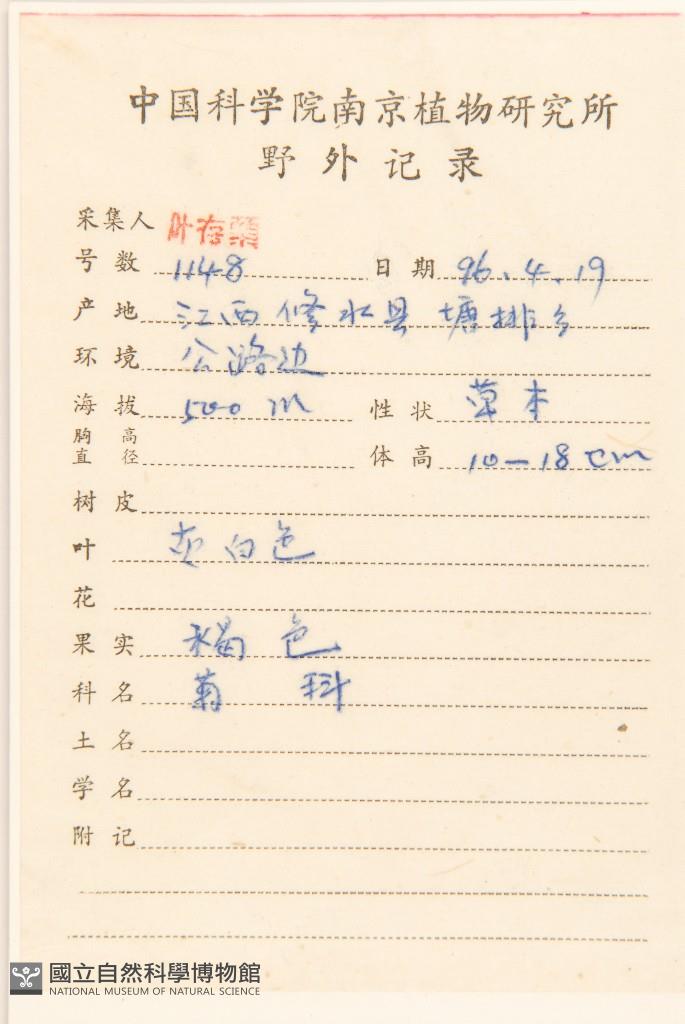 中国科学院南京植物研究所
野外记录
采集人 叶存粟
号数 1148 日期 96.4.19
产地 江西修水县塘排乡
环境 公路边
海拔 500 m 性状 草本
胸高直径 体高 10-18 cm
树皮
叶 灰白色
花
果实 褐色
科名 菊科
土名
学名
附记
國立自然科學博物館
NATIONAL MUSEUM OF NATURAL SCIENCE